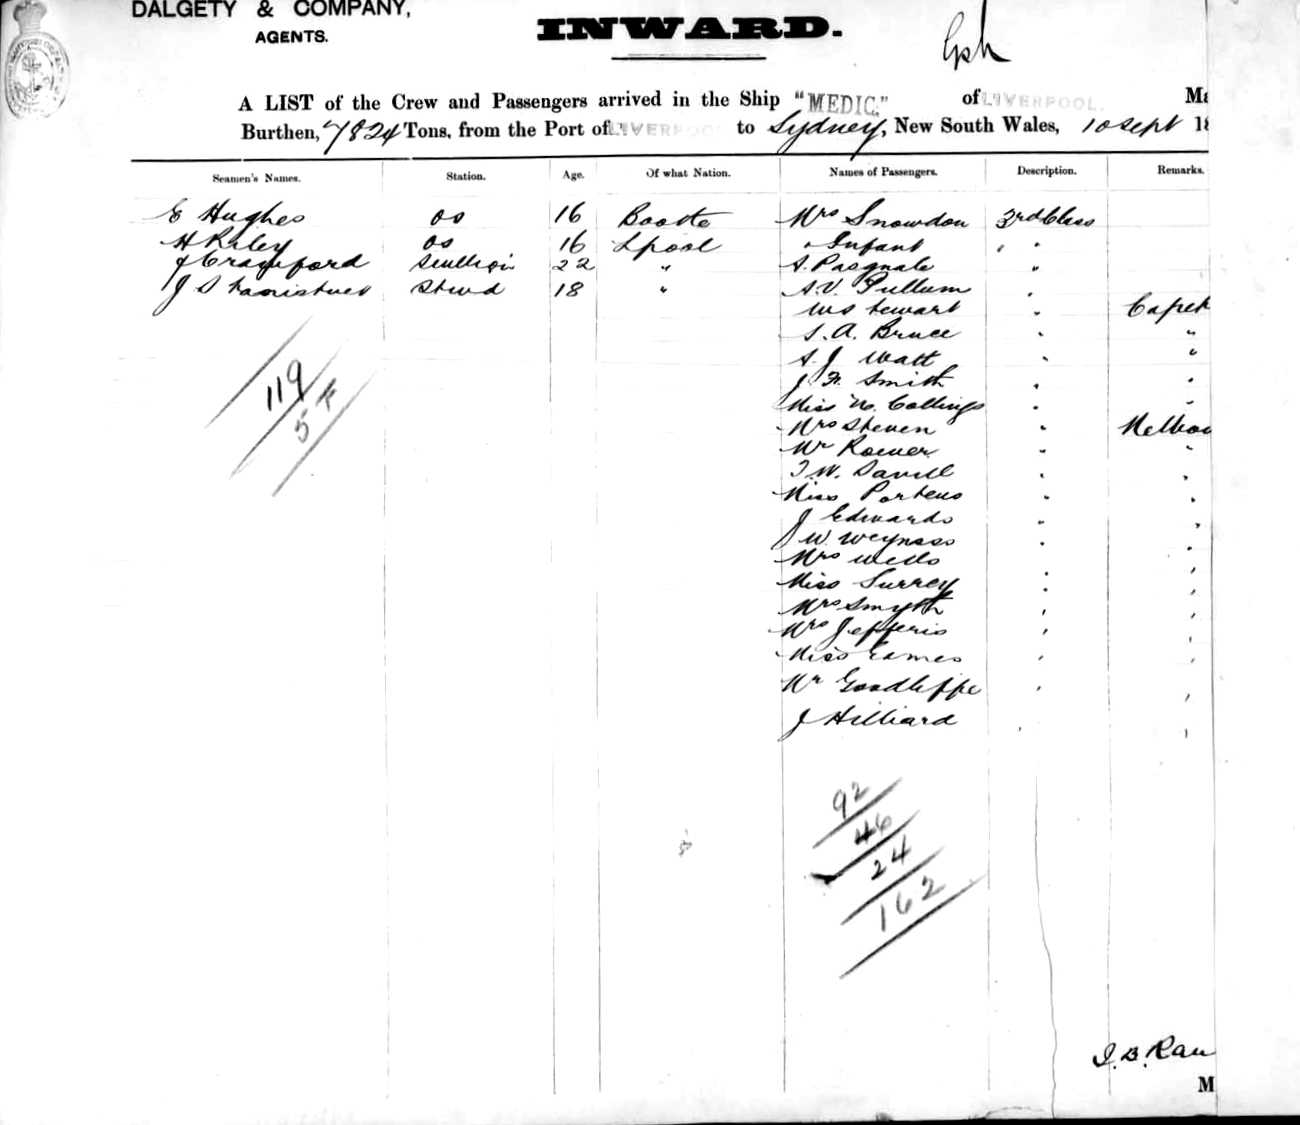 DALGETY & COMPANY,
AGENTS.
INWARD.
A LIST of the Crew and Passengers arrived in the Ship "MEDIC," of LIVERPOOL.
Burthen, 7824 Tons, from the Port of LIVERPOOL to Sydney, New South Wales, 10 Sept 18
Seamen's Names. Station. Age. Of what Nation. Names of Passengers. Description. Remarks.
E Hughes OS 16 Bootle Mrs Snowdon 3rd Class
H Riley OS 16 Lpool " Infant " "
J Crawford Scullion 22 " S. Pasquale "
J S Stewd 18 " A.V. Pullum "
W Stewart "
S. A. Bruce " "
A. J Watt " "
J. H. Smith " "
Miss N. Collings " "
Mrs Steven "
Mr Roemer " "
T. W. Savill " "
Miss Porteus " "
J Edwards " "
J W. Weyness " "
Mrs Wells "
Miss Surrey " "
Mrs Smyth " "
Mrs Jefferis " "
Miss Eames " "
Mr Goodliffe " "
J Hilliard " "
119
54
92
46
24
162
J. B. Ran
M